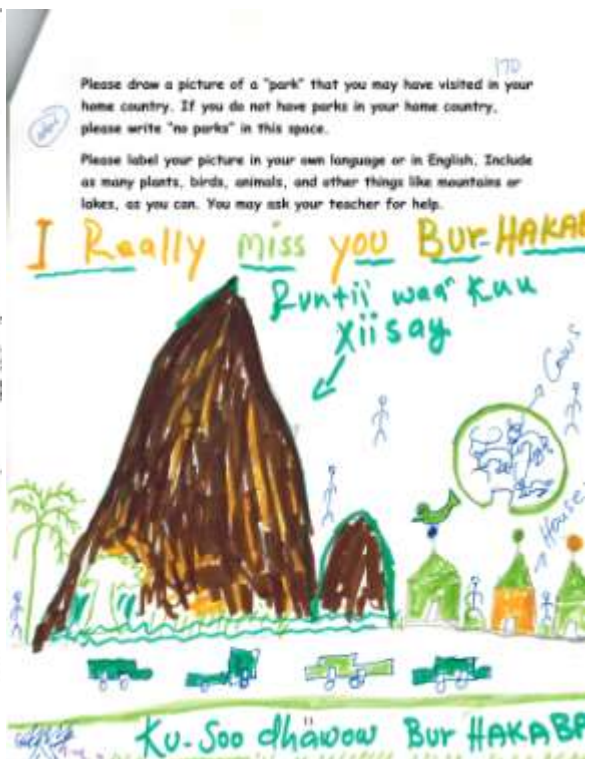 170
Please draw a picture of a "park" that you may have visited in your
home country. If you do not have parks in your home country,
please write "no parks" in this space.
Please label your picture in your own language or in English. Include
as many plants, birds, animals, and other things like mountains or
lakes, as you can. You may ask your teacher for help.
I Really miss you Bur-HAKAB
Runtii waa Kuu
Xiisay
Cows
House
Ku-Soo dhäwow Bur HAKABA